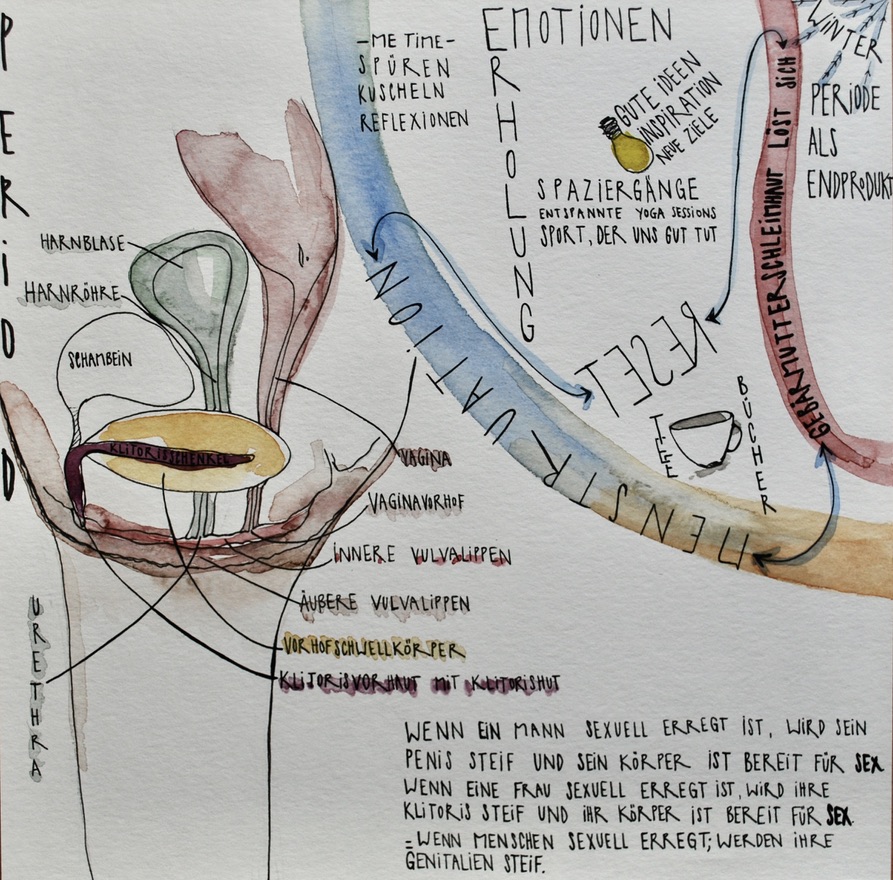 PERIOD
-ME TIME-
SPÜREN
KUSCHELN
REFLEXIONEN
EMOTIONEN
ERHOLUNG
GUTE IDEEN
INSPIRATION
NEUE ZIELE
SPAZIERGÄNGE
ENTSPANNTE YOGA SESSIONS
SPORT, DER UNS GUT TUT
WINTER
PERIODE
ALS
ENDPRODUKT
GEBÄRMUTTERSCHLEIMHAUT LÖST SICH
MENSTRUATION
RESET
TEE
BÜCHER
HARNBLASE
HARNRÖHRE
SCHAMBEIN
KLITORISSCHENKEL
VAGINA
VAGINAVORHOF
INNERE VULVALIPPEN
ÄUßERE VULVALIPPEN
VORHOFSCHWELLKÖRPER
KLITORISVORHAUT MIT KLITORISHUT
URETHRA
WENN EIN MANN SEXUELL ERREGT IST, WIRD SEIN
PENIS STEIF UND SEIN KÖRPER IST BEREIT FÜR SEX
WENN EINE FRAU SEXUELL ERREGT IST, WIRD IHRE
KLITORIS STEIF UND IHR KÖRPER IST BEREIT FÜR SEX.
=WENN MENSCHEN SEXUELL ERREGT; WERDEN IHRE
GENITALIEN STEIF.